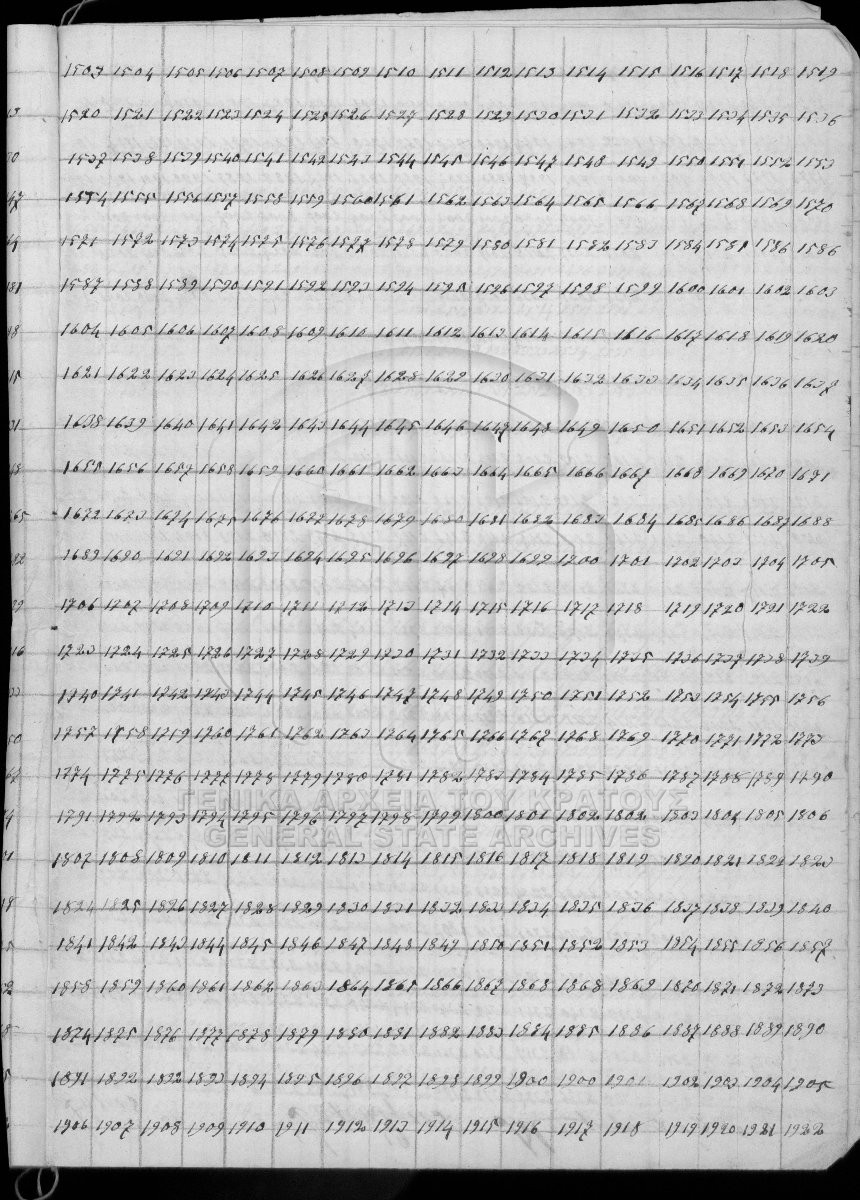 1503 1504 1505 1506 1507 1508 1509 1510 1511 1512 1513 1514 1515 1516 1517 1518 1519
1520 1521 1522 1523 1524 1525 1526 1527 1528 1529 1530 1531 1532 1533 1534 1535 1536
1537 1538 1539 1540 1541 1542 1543 1544 1545 1546 1547 1548 1549 1550 1551 1552 1553
1554 1555 1556 1557 1558 1559 1560 1561 1562 1563 1564 1565 1566 1567 1568 1569 1570
1571 1572 1573 1574 1575 1576 1577 1578 1579 1580 1581 1582 1583 1584 1585 1586 1586
1587 1588 1589 1590 1591 1592 1593 1594 1595 1596 1597 1598 1599 1600 1601 1602 1603
1604 1605 1606 1607 1608 1609 1610 1611 1612 1613 1614 1615 1616 1617 1618 1619 1620
1621 1622 1623 1624 1625 1626 1627 1628 1629 1630 1631 1632 1633 1634 1635 1636 1637
1638 1639 1640 1641 1642 1643 1644 1645 1646 1647 1648 1649 1650 1651 1652 1653 1654
1655 1656 1657 1658 1659 1660 1661 1662 1663 1664 1665 1666 1667 1668 1669 1670 1671
1672 1673 1674 1675 1676 1677 1678 1679 1680 1681 1682 1683 1684 1685 1686 1687 1688
1689 1690 1691 1692 1693 1694 1695 1696 1697 1698 1699 1700 1701 1702 1703 1704 1705
1706 1707 1708 1709 1710 1711 1712 1713 1714 1715 1716 1717 1718 1719 1720 1721 1722
1723 1724 1725 1726 1727 1728 1729 1730 1731 1732 1733 1734 1735 1736 1737 1738 1739
1740 1741 1742 1743 1744 1745 1746 1747 1748 1749 1750 1751 1752 1753 1754 1755 1756
1757 1758 1759 1760 1761 1762 1763 1764 1765 1766 1767 1768 1769 1770 1771 1772 1773
1774 1775 1776 1777 1778 1779 1780 1781 1782 1783 1784 1785 1786 1787 1788 1789 1790
1791 1792 1793 1794 1795 1796 1797 1798 1799 1800 1801 1802 1802 1803 1804 1805 1806
1807 1808 1809 1810 1811 1812 1813 1814 1815 1816 1817 1818 1819 1820 1821 1822 1823
1824 1825 1826 1827 1828 1829 1830 1831 1832 1833 1834 1835 1836 1837 1838 1839 1840
1841 1842 1843 1844 1845 1846 1847 1848 1849 1850 1851 1852 1853 1854 1855 1856 1857
1858 1859 1860 1861 1862 1863 1864 1865 1866 1867 1868 1868 1869 1870 1871 1872 1873
1874 1875 1876 1877 1878 1879 1880 1881 1882 1883 1884 1885 1886 1887 1888 1889 1890
1891 1892 1892 1893 1894 1895 1896 1897 1898 1899 1900 1900 1901 1902 1903 1904 1905
1906 1907 1908 1909 1910 1911 1912 1913 1914 1915 1916 1917 1918 1919 1920 1921 1922
ΓΕΝΙΚΑ ΑΡΧΕΙΑ ΤΟΥ ΚΡΑΤΟΥΣ
GENERAL STATE ARCHIVES